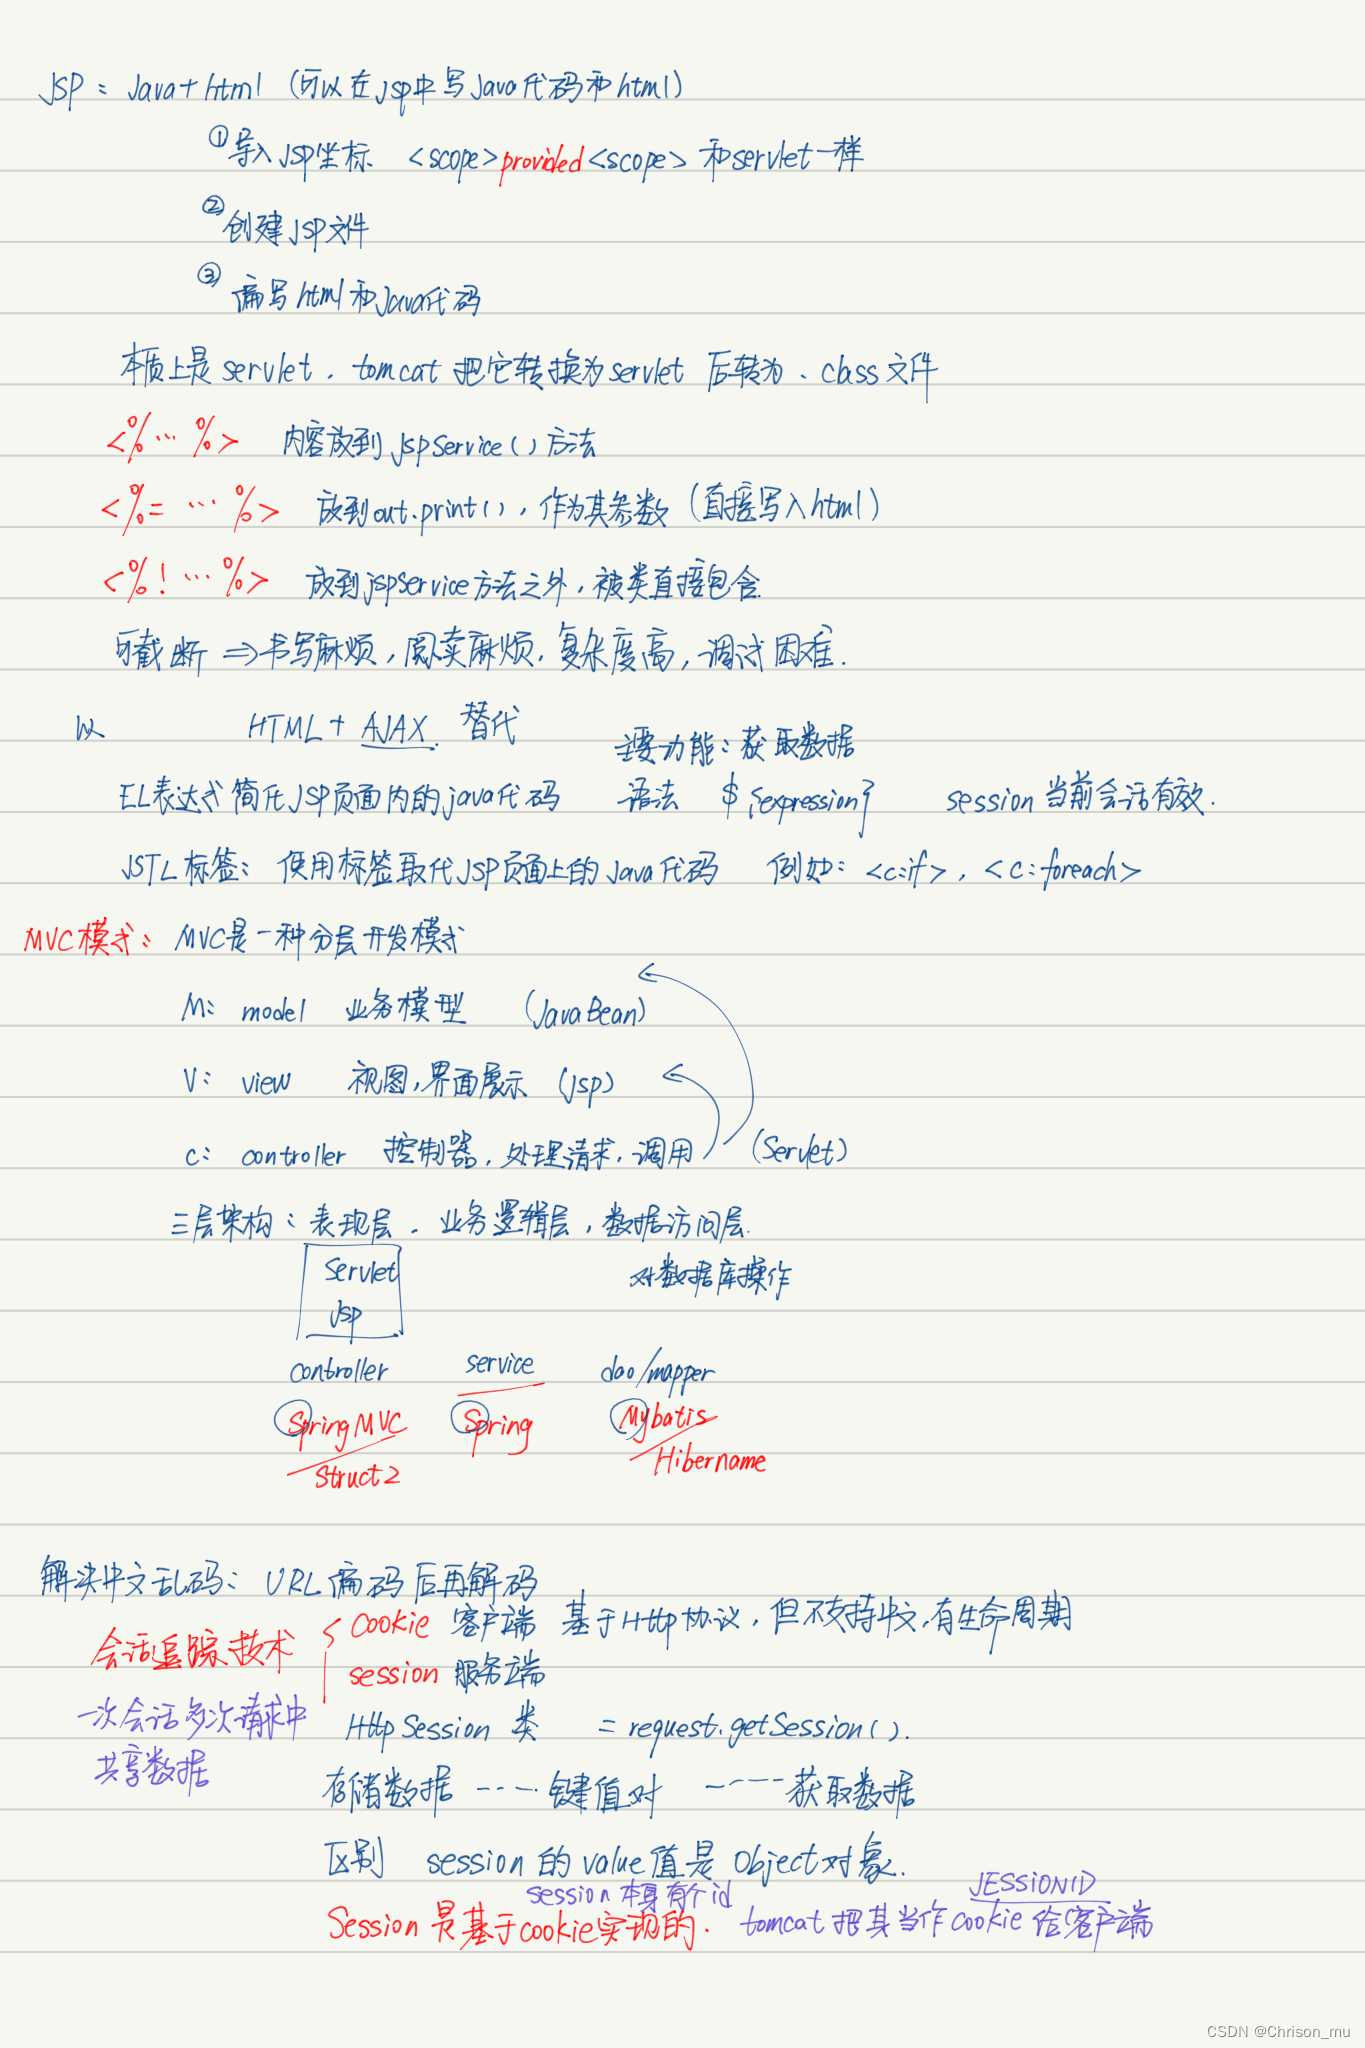 JSP = Java+html (可以在jsp中写Java代码和html)
① 导入JSP坐标 <scope>provided<scope> 和servlet一样
② 创建JSP文件
③ 编写html和Java代码
本质上是servlet. tomcat把它转换为servlet后转为.class文件
<%...%> 内容放到jspService()方法
<%= ... %> 放到out.print(),作为其参数(直接写入html)
<%! ... %> 放到jspService方法之外,被类直接包含
可截断 ⇒ 书写麻烦,阅读麻烦.复杂度高,调试困难.
以 HTML+AJAX 替代
主要功能:获取数据
EL表达式简化JSP页面内的java代码 语法 ${expression} session当前会话有效.
JSTL标签: 使用标签取代JSP页面上的Java代码 例如: <c:if>, <c:foreach>
MVC模式: MVC是一种分层开发模式
M: model 业务模型 (JavaBean)
V: view 视图,界面展示 (jsp)
C: controller 控制器,处理请求,调用 (Servlet)
三层架构: 表现层. 业务逻辑层, 数据访问层.
Servlet 对数据库操作
jsp
controller service dao/mapper
SpringMVC Spring Mybatis
Struct2 Hibername
解决中文乱码: URL编码后再解码
会话追踪技术 Cookie 客户端 基于Http协议,但不支持中文,有生命周期
session 服务端
一次会话多次请求中
共享数据
HttpSession 类 = request.getSession().
存储数据 ---- 键值对 ---- 获取数据
区别 session的value值是Object对象.
session本身有个id JESSIONID
Session是基于cookie实现的. tomcat把其当作cookie给客户端
CSDN @Chrison_mu